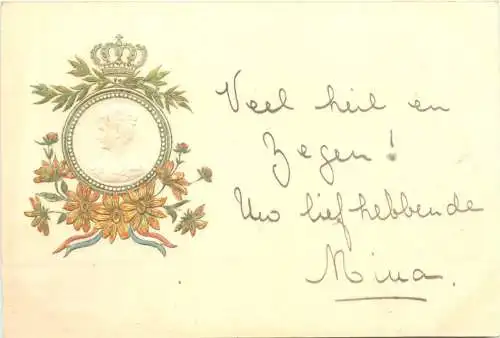 Veel heil en
Zegen!
Uw liefhebbende
Mina.